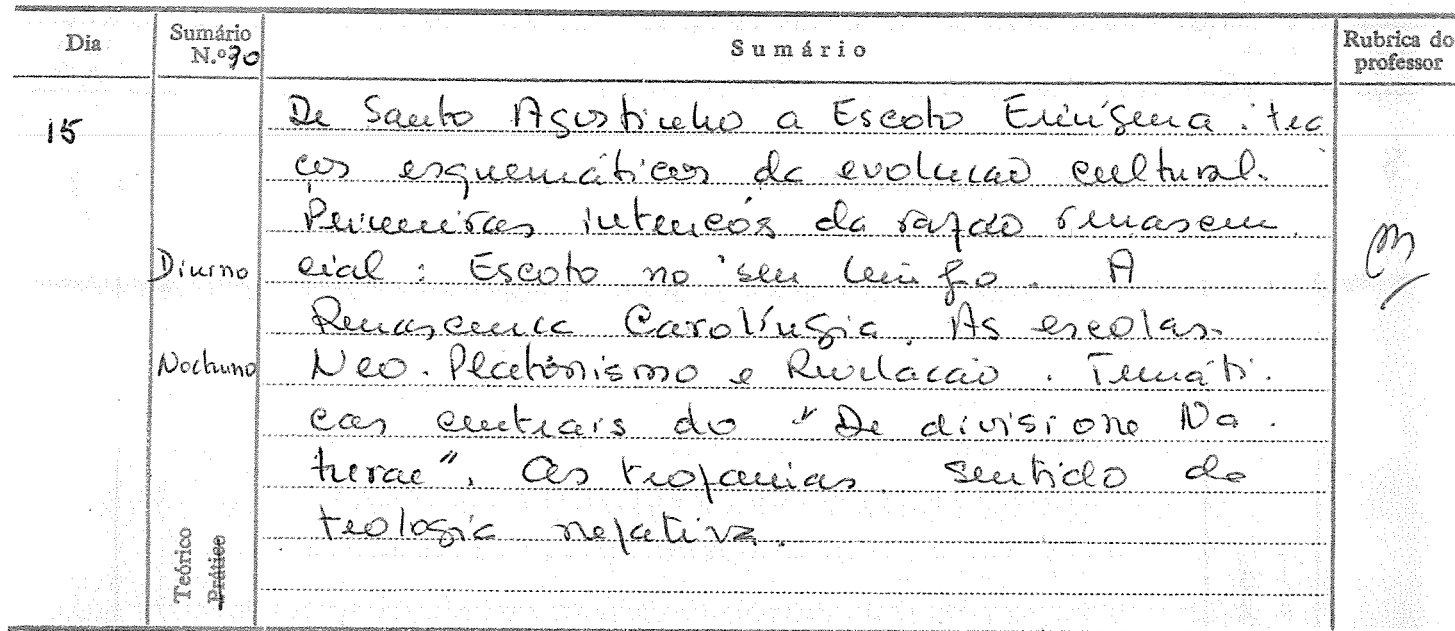 Dia
Sumário N.º 30
Sumário
Rubrica do professor
15
De Santo Agostinho a Escoto Eriúgena: tra
ços esquemáticos da evolução cultural.
Primeiras intenções da razão renascen
Diurno
cial: Escoto no seu tempo. A
Renascença Carolíngia. As escolas.
Nocturno
Neo-Platónismo e Revelação. Temáti-
cas centrais do "De divisione Na-
turae". As teofanias. Sentido da
teologia negativa.
Teórico
Prático